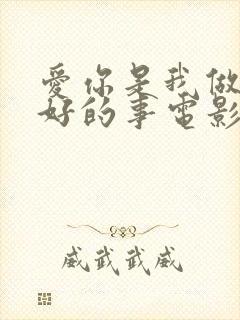 爱你是我做
好的事电影
威武武威